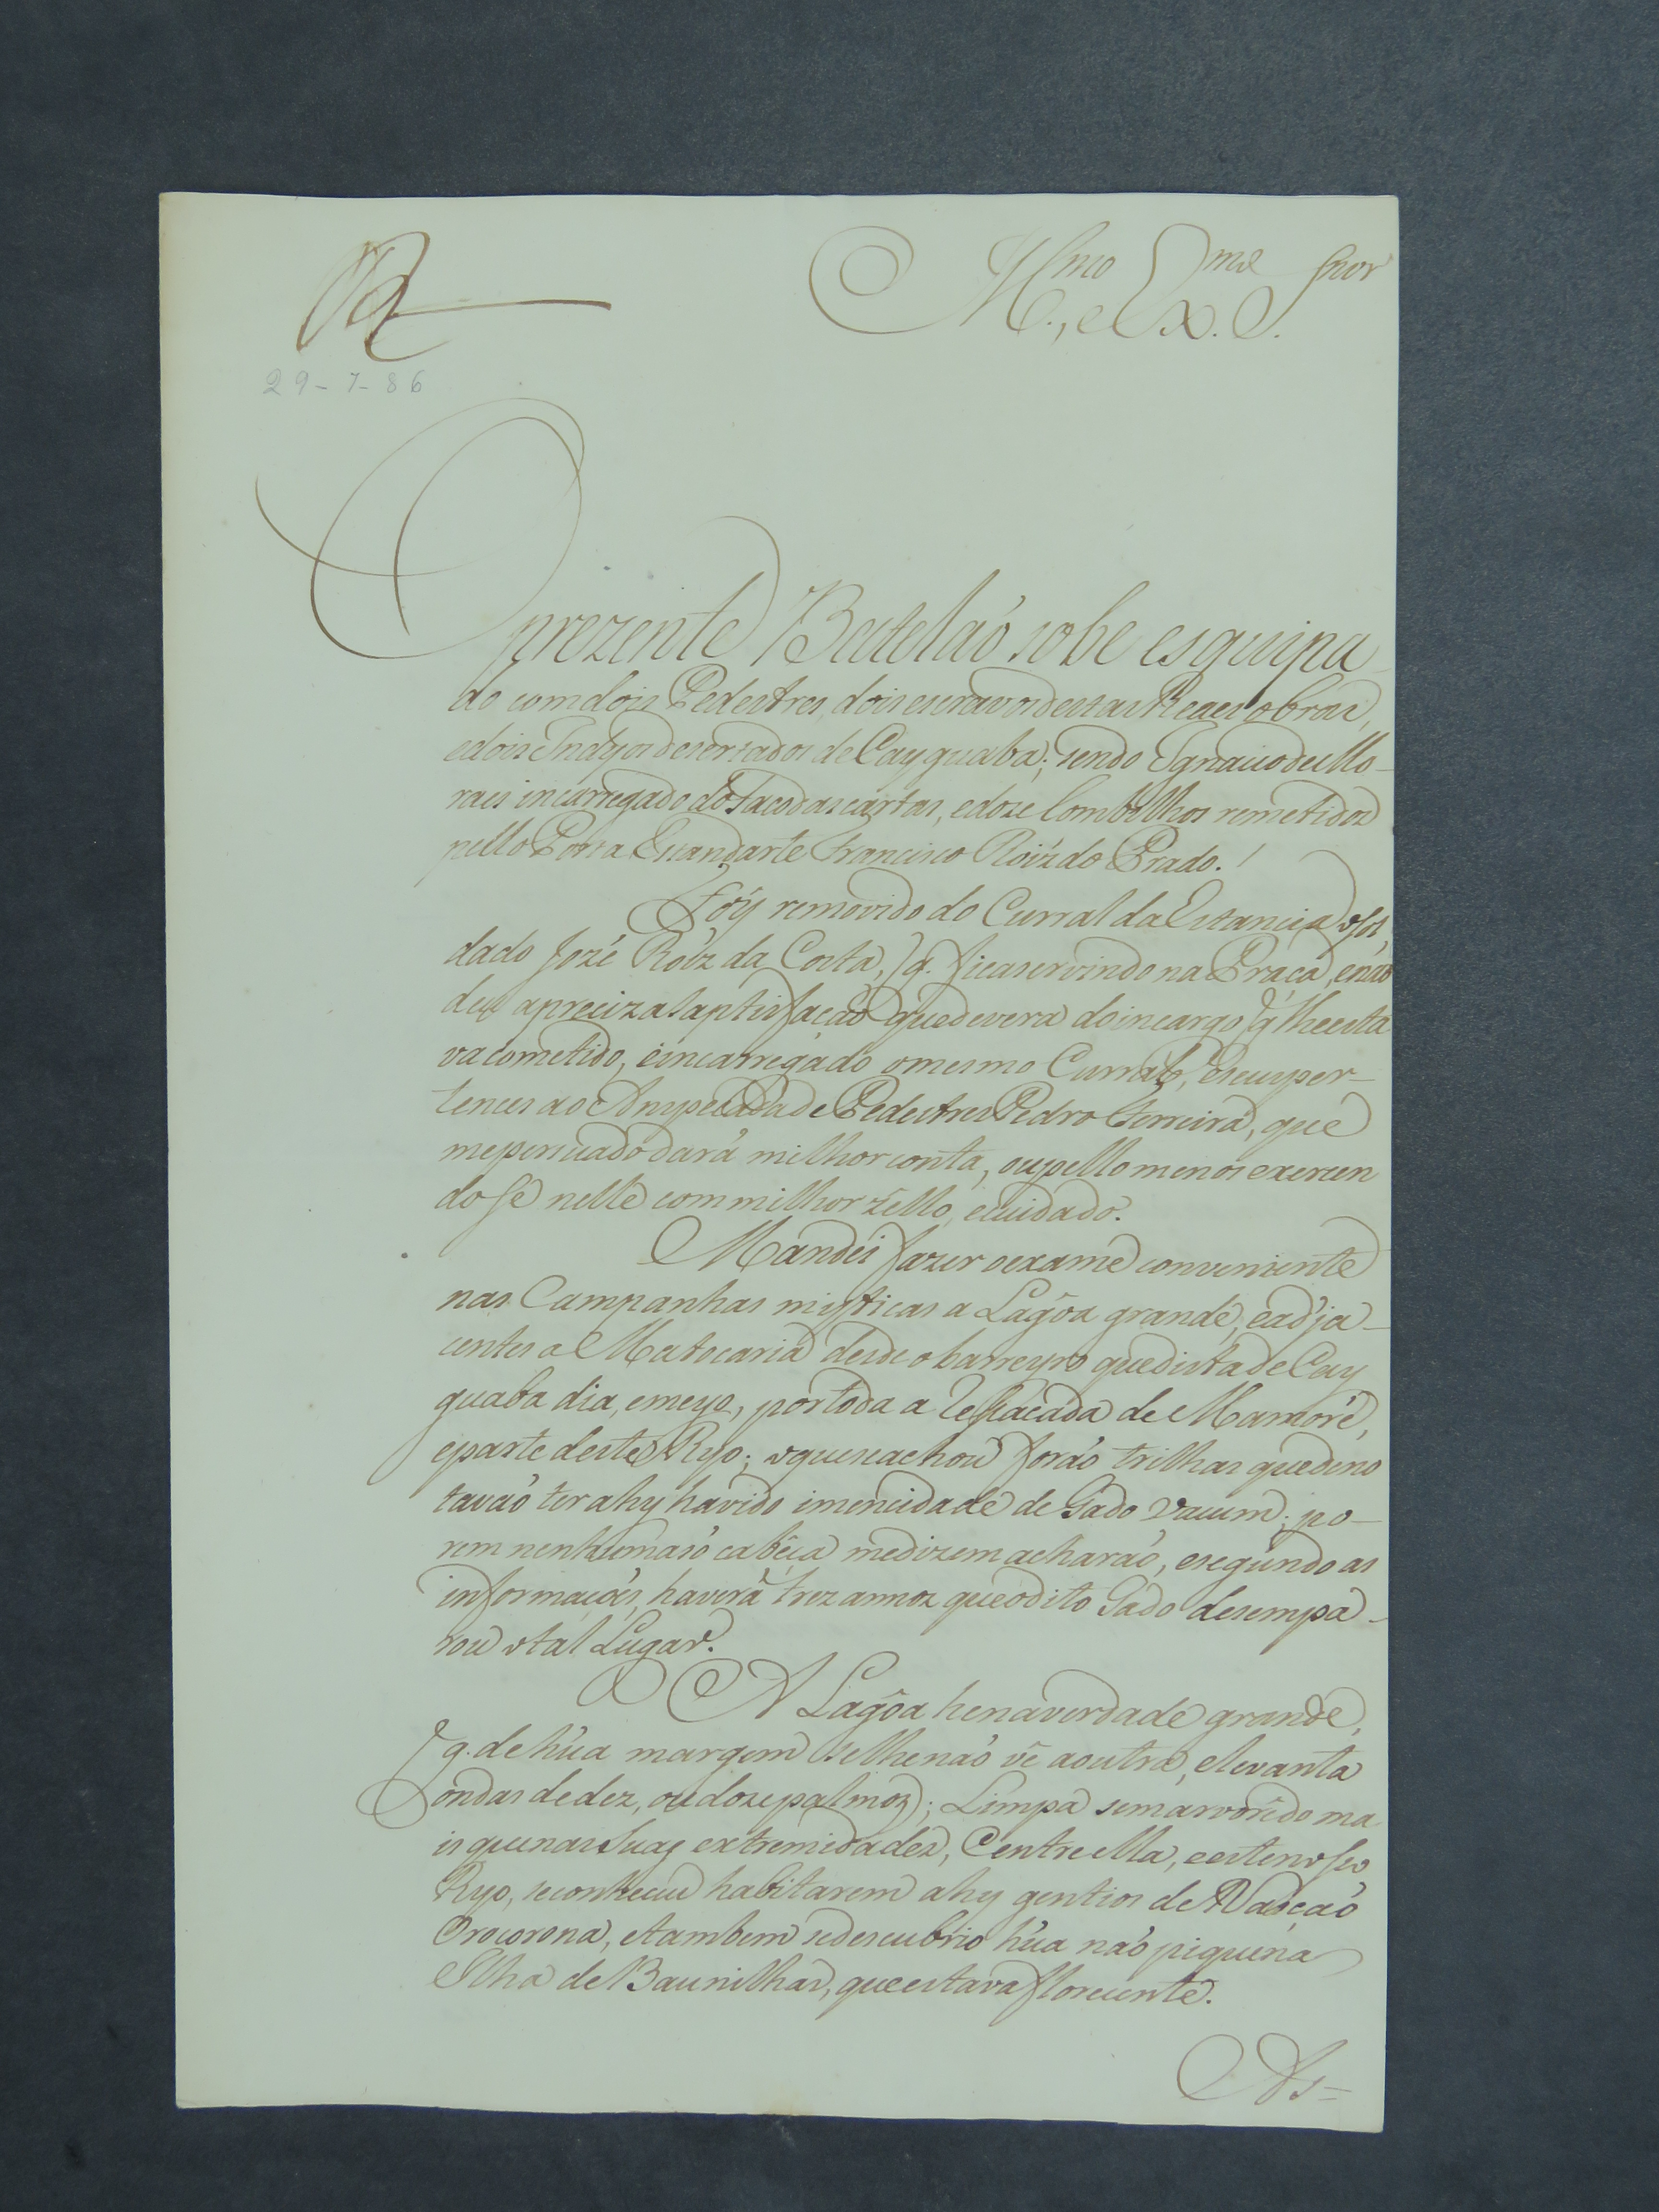 Ill.mo, e Ex.mo Snor
29-7-86
O prezente Batelaõ sobe esquipa-
do com dois Pedestres, dois escravos destas Reaes obras,
e dois Indyos desertados de Cayguaba; sendo Ignacio de Mo-
raes incarregado do saco das cartas, e doze Lombilhos remetidos
pello Porta Estandarte Francisco Roiz do Prado.
Foy removido do Curral da Estancia o sol-
dado Jozé Roiz da Costa, q. fica servindo na Praça, e naõ
deu a preciza saptisfaçaõ que devera do incargo q' lhe esta
va cometido, e incarregado o mesmo Curral, e seus per-
tences ao Anspeçada de Pedestres Pedro Ferreira, que
me persuado dará milhor conta, ou pello menos exercen
do se nelle com milhor zello, e cuidado.
Mandei fazer o exame conveniente
nas Campanhas misticas a Lagôa grande, e adja-
centes a Matocaria desde o barreyro que dista de Cay
guaba dia, e meyo, por toda a de Mamoré,
e parte deste Ryo; o que se achou foraõ trilhas que deno
tavaõ ter ahy havido imencidade de Gado vacum; po-
rem nenhuma só cabêça me dizem acharaõ, e segundo as
informaçoés, haverá trez annoz que o dito Gado desempa-
rou o tal Lugar.
A Lagôa he na verdade grande,
q. de hũa margem se lhe naõ vê a outra, e levanta
ondas de dez, ou doze palmoz; Limpa sem arvorêdo ma
is que nas suas extremidades, e entre ella, e este nosso
Ryo, se conheceu habitarem ahy gentios de Nasçaõ
Orocorona, e tambem se descubrio hũa naõ piquena
Ilha de Baunilhas, que estava florecente.
As-